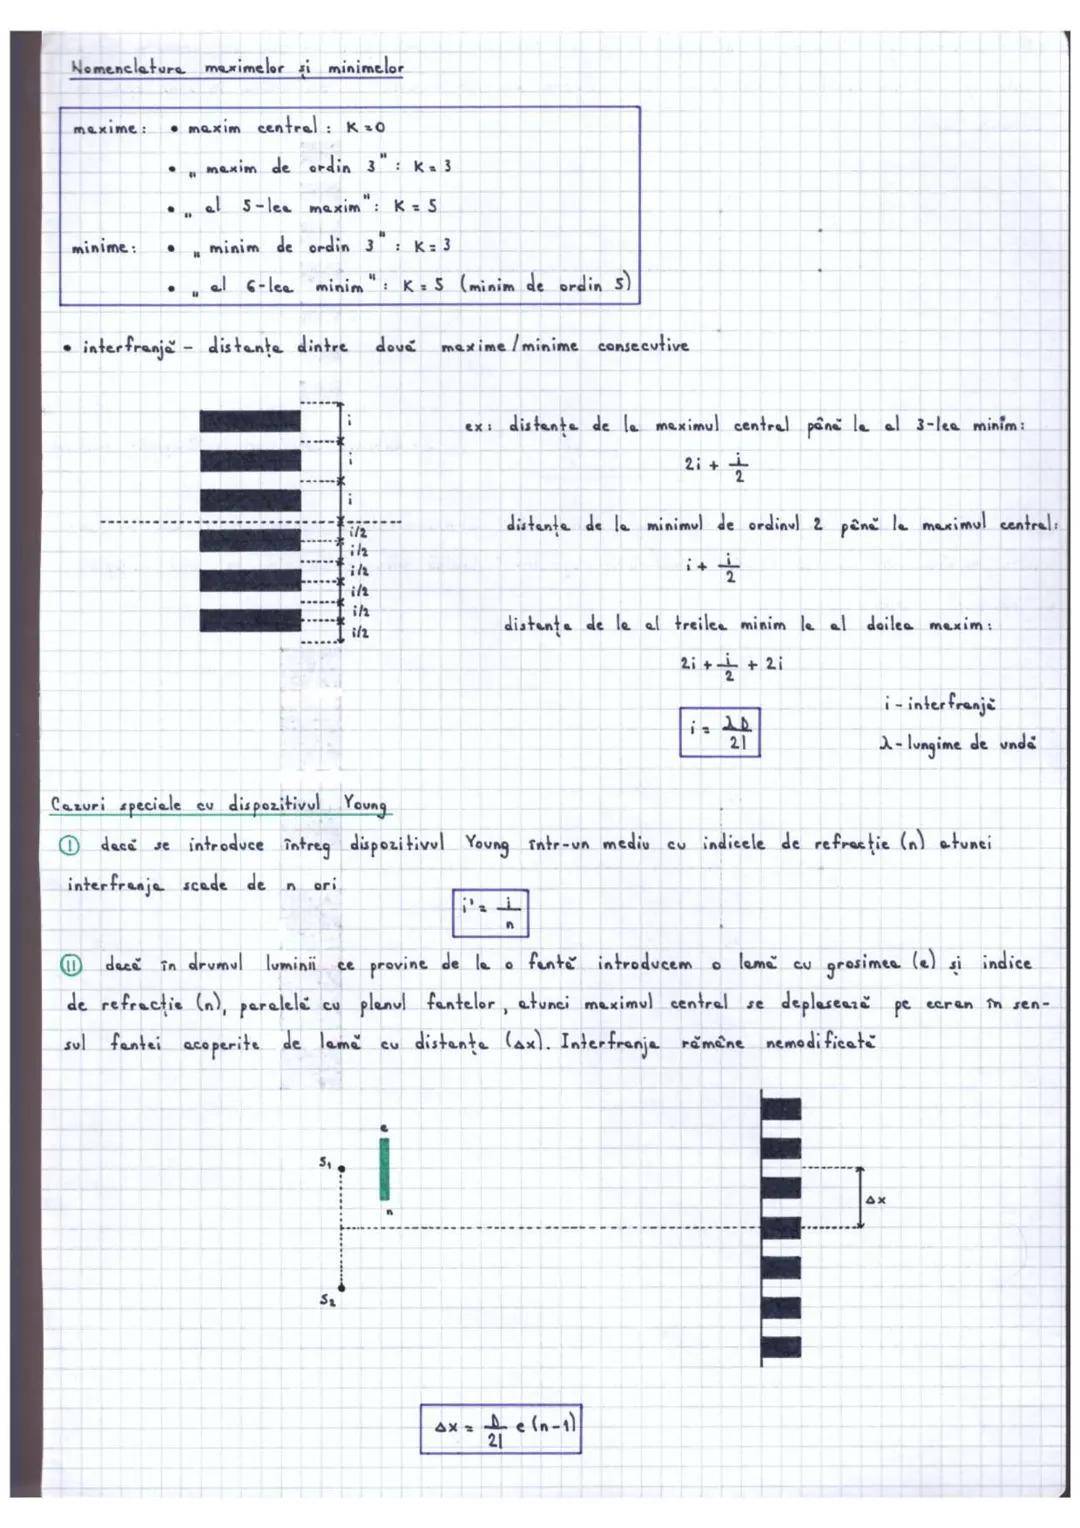 Nomenclatura maximelor și minimelor
maxime: • maxim central: K=0
• „maxim de ordin 3": K=3
• „al 5-lea maxim": K=5
minime: • „minim de ordin 3": K=3
• „al 6-lea minim": K=5 (minim de ordin 5)
• interfranjă - distanța dintre două maxime/minime consecutive
i
i
i
i/2
i/2
i/2
i/2
i/2
i/2
ex: distanța de la maximul central până la al 3-lea minim:
2i + i/2
distanța de la minimul de ordinul 2 până la maximul central:
i + i/2
distanța de la al treilea minim la al doilea maxim:
2i + i/2 + 2i
i = λD/2l
i - interfranjă
λ - lungime de undă
Cazuri speciale cu dispozitivul Young
I dacă se introduce întreg dispozitivul Young într-un mediu cu indicele de refracție (n) atunci
interfranja scade de n ori
i' = i/n
II dacă în drumul luminii ce provine de la o fantă introducem o lamă cu grosimea (e) și indice
de refracție (n), paralelă cu planul fantelor, atunci maximul central se deplasează pe ecran în sen-
sul fantei acoperite de lamă cu distanța (Δx). Interfranja rămâne nemodificată
e
S₁
n
Δx
S₂
Δx = D/2l e(n-1)